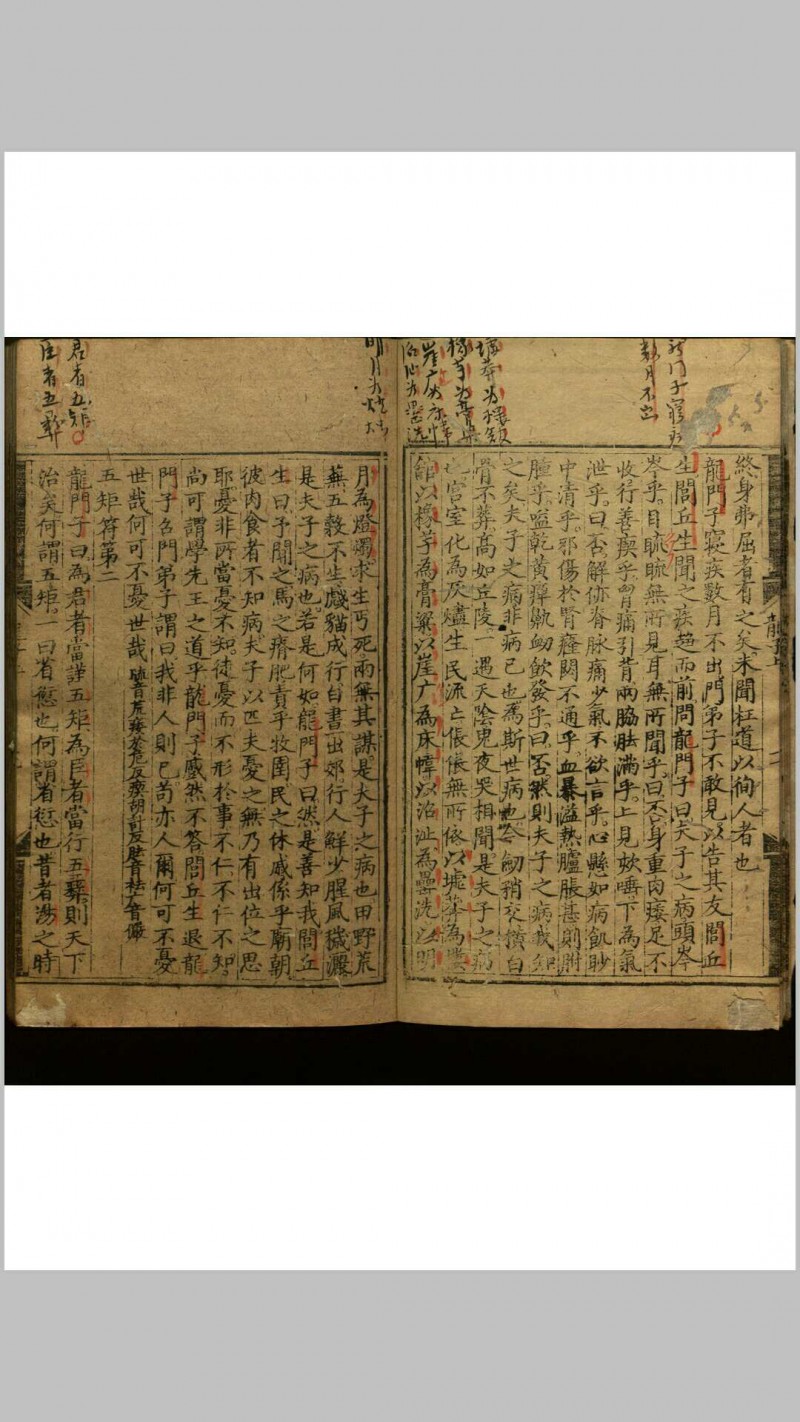 終身弗屈者有之矣未聞枉道以徇人者也
龍門子寢疾數月不出門弟子不敢見以告其友閭丘
生閭丘生聞之疾趨而前問龍門子曰夫子之病頭岑
岑乎目䀮䀮無所見耳無所聞乎曰否身重肉痿足不
收行善瘈乎胷痛引背兩脇胠滿乎上見欬唾下為氣
泄乎曰否解㑊脊脉痛少氣不欲言乎心懸如病飢䏚
中清乎邪傷於腎癃閟不通乎血暴溢熱臚脹甚則胕
腫乎嗌乾黄癉鼽衄飲發乎曰否然則夫子之病我知
之矣夫子之病非病已也為斯世病也
骨不葬高如丘陵一遇天陰鬼夜哭相聞是夫子之病
也宫室化為灰燼生民流亡倀倀無所依以墟莽為
館以橡芧為膏粱以崖广為床幃以沿沚為罍洗以明
月為燈燭求生丐死兩無其謀是夫子之病也田野荒
蕪五穀不生戲貓成行白晝出郊行人鮮少腥風穢濺
是夫子之病也若是何如龍門子曰然是善知我閭丘
生曰予聞之馬之瘠肥責乎牧圉民之休戚係乎廟朝
彼肉食者不知病夫子以匹夫憂之無乃有出位之思
耶憂非所當憂不知徒憂而不形於事不仁不仁不知
尚可謂學先王之道乎龍門子慼然不答閭丘生退龍
門子召門弟子謂曰我非人則已苟亦人爾何可不憂
世哉何可不憂世哉
五矩符第二
龍門子曰為君者當謹五矩為臣者當行五彝則天下
治矣何謂五矩一曰省愆也何謂省愆也昔者湯之時
龍子上
君者五矩
臣者五彝